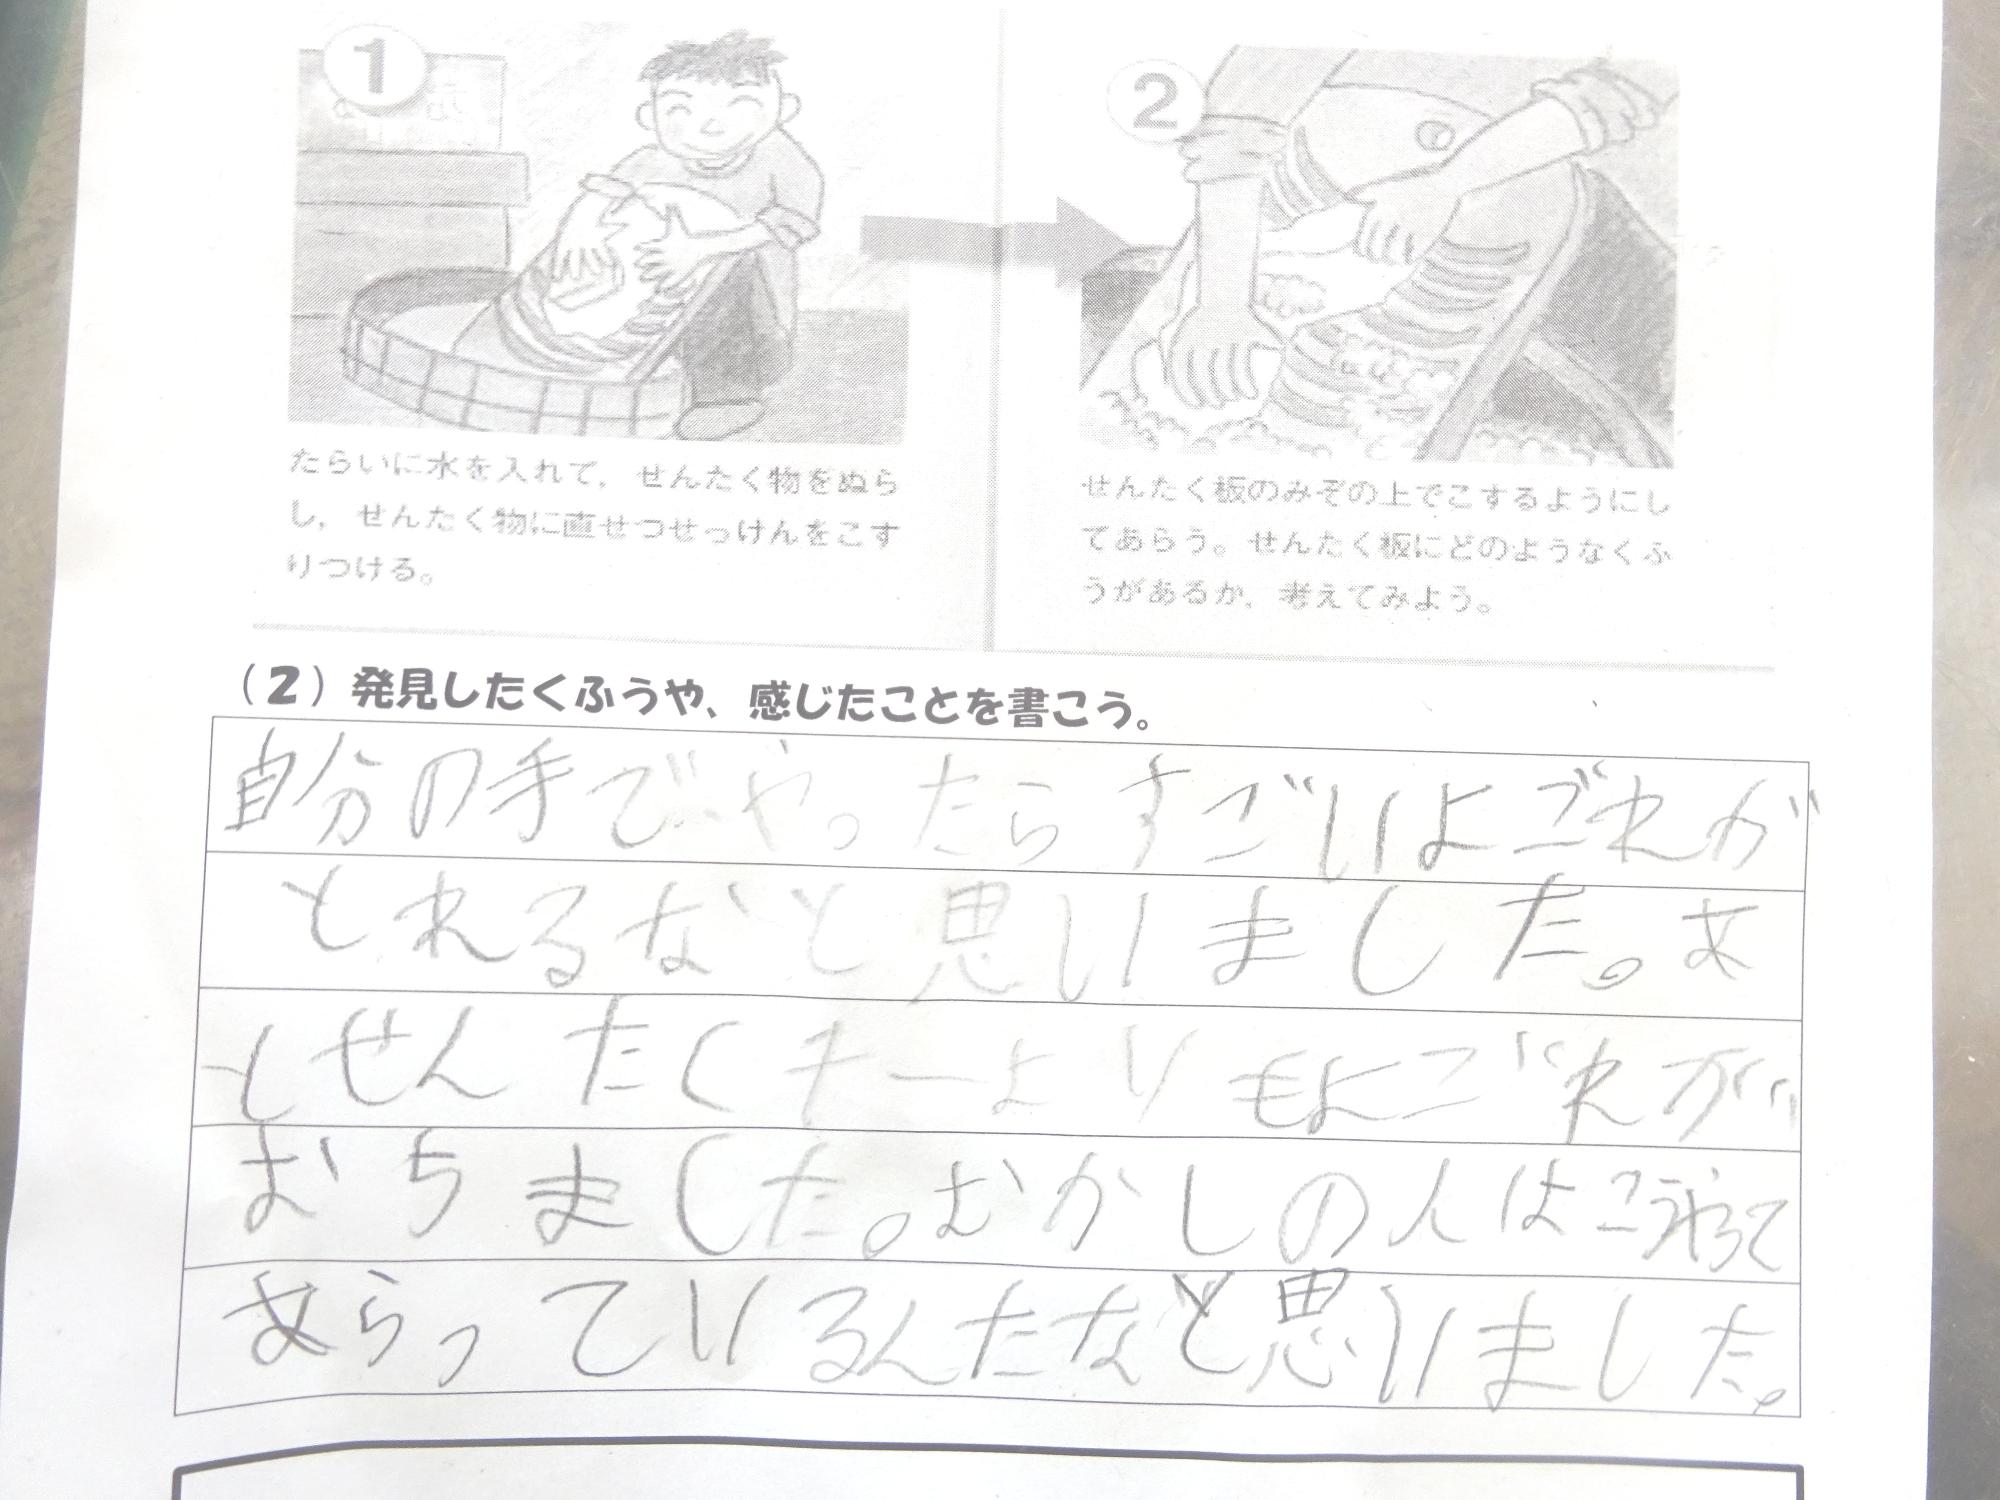 1
たらいに水を入れて，せんたく物をぬら
し，せんたく物に直せつせっけんをこす
りつける。
2
せんたく板のみぞの上でこするようにし
てあらう。せんたく板にどのようなくふ
うがあるか，考えてみよう。
（2）発見したくふうや、感じたことを書こう。
自分の手でやったらすごいよごれが
とれるなと思いました。あ
とせんたくキーよりもよごれが
おちました。むかしの人はこうやって
あらっているんだなと思いました。